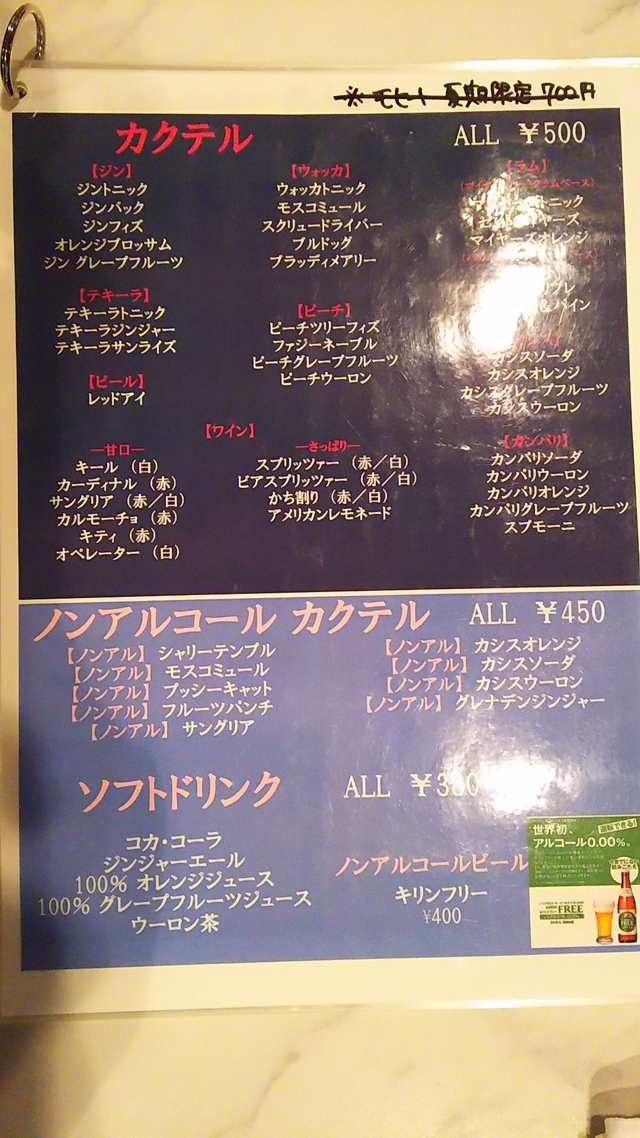 ※モヒート 夏期限定 700円
カクテル ALL ￥500
【ジン】
ジントニック
ジンバック
ジンフィズ
オレンジブロッサム
ジン グレープフルーツ
【テキーラ】
テキーラトニック
テキーラジンジャー
テキーラサンライズ
【ビール】
レッドアイ
【ウォッカ】
ウォッカトニック
モスコミュール
スクリュードライバー
ブルドッグ
ブラッディメアリー
【ピーチ】
ピーチツリーフィズ
ファジーネーブル
ピーチグレープフルーツ
ピーチウーロン
【ラム】
マイヤーズオレンジ
カシスソーダ
カシスオレンジ
カシスグレープフルーツ
カシスウーロン
【ワイン】
―甘口―
キール （白）
カーディナル （赤）
サングリア （赤／白）
カルモーチョ （赤）
キティ （赤）
オペレーター （白）
―さっぱり―
スプリッツァー （赤／白）
ビアスプリッツァー （赤／白）
かち割り （赤／白）
アメリカンレモネード
【カンパリ】
カンパリソーダ
カンパリウーロン
カンパリオレンジ
カンパリグレープフルーツ
スプモーニ
ノンアルコール カクテル ALL ￥450
【ノンアル】 シャリーテンプル
【ノンアル】 モスコミュール
【ノンアル】 プッシーキャット
【ノンアル】 フルーツパンチ
【ノンアル】 サングリア
【ノンアル】 カシスオレンジ
【ノンアル】 カシスソーダ
【ノンアル】 カシスウーロン
【ノンアル】 グレナデンジンジャー
ソフトドリンク ALL
コカ・コーラ
ジンジャーエール
100% オレンジジュース
100% グレープフルーツジュース
ウーロン茶
ノンアルコールビール
キリンフリー
￥400
世界初、
アルコール0.00%。
FREE